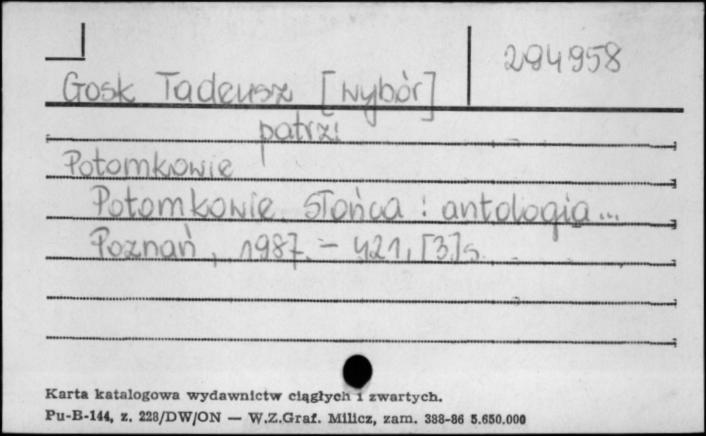 294958
Gosk Tadeusz [wybór]
patrz:
Potomkowie
Potomkowie słońca : antologia...
Poznań, 1987. - 421, [3] s.
Karta katalogowa wydawnictw ciągłych i zwartych.
Pu-B-144, z. 228/DW/ON — W.Z.Graf. Milicz, zam. 388-86 5.650.000